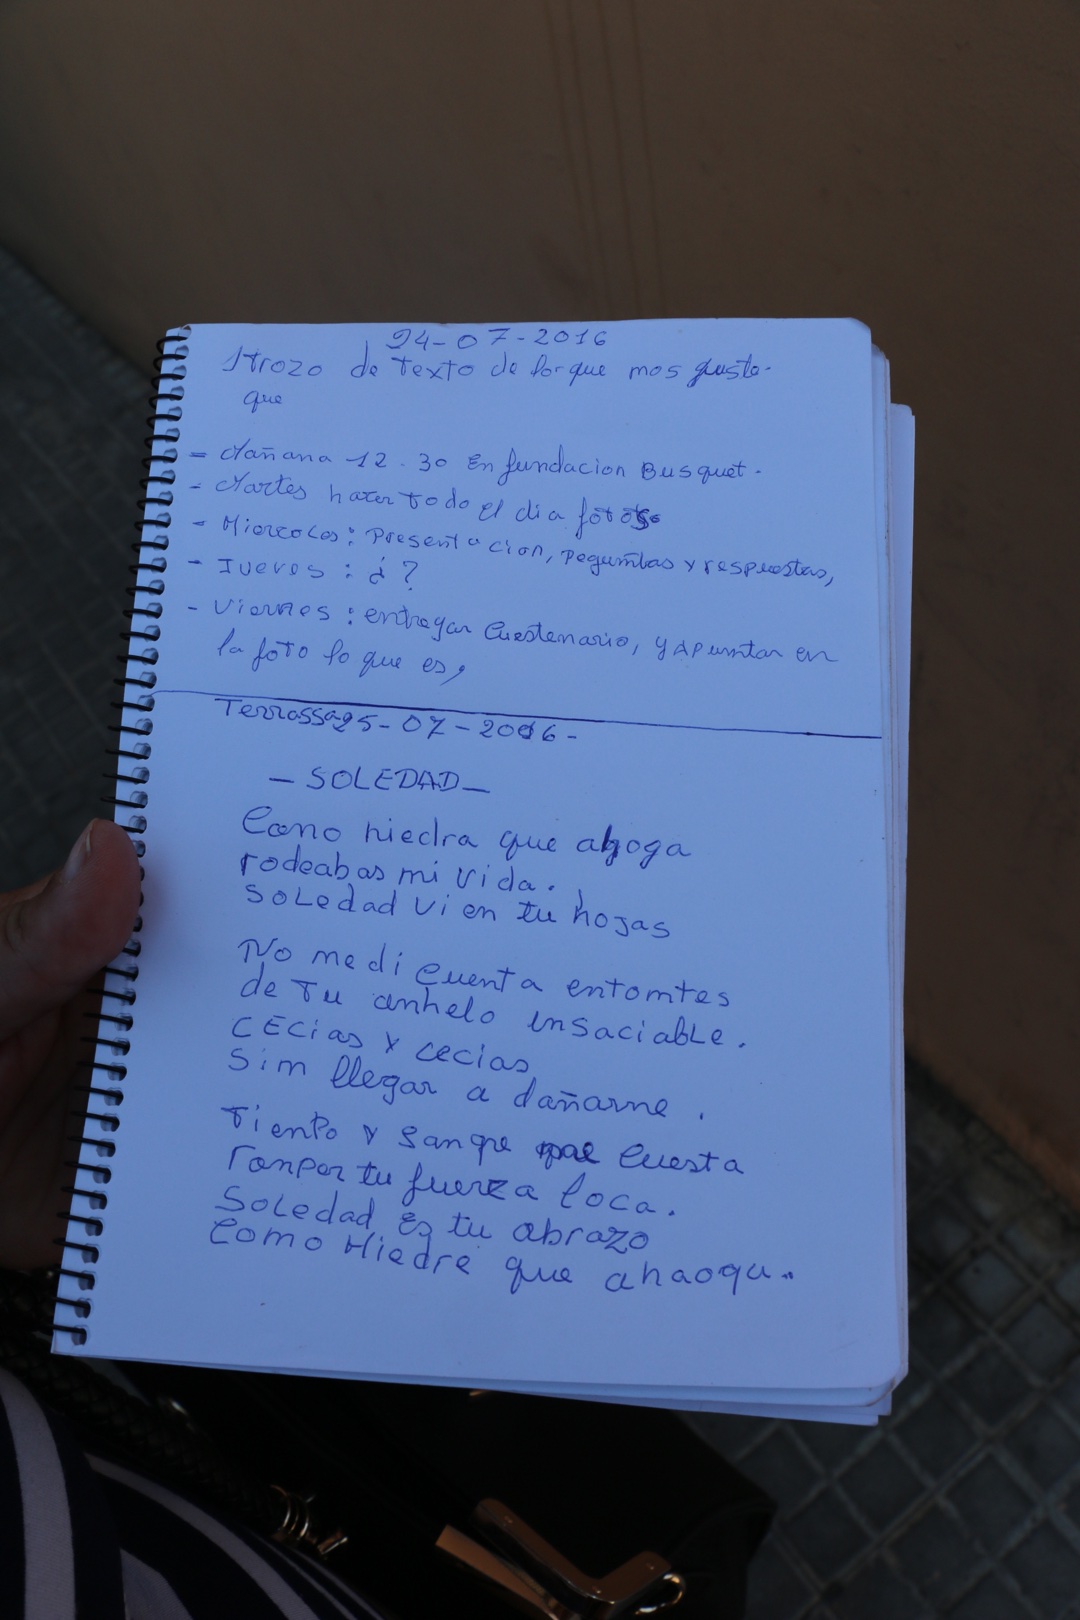 24-07-2016
1 trozo de texto de lo que mos guste.
que
- Mañana 12.30 En fundacion Busquet.
- Martes hacer todo el dia fotos
- Miercoles: Presentacion, pegumtas y respuestas,
- Jueves: ¿?
- Viernes: entregar Cuestenario, y apumtar en
la foto lo que es,
Terrassa 25-07-2016-
- SOLEDAD -
Como hiedra que ahoga
rodeabas mi vida.
SoLedad vi en tu hojas
No me di cuenta entomtes
de Tu anhelo insaciabLe.
CECias y cecias
Sim llegar a dañarme.
Tiento y Sangre me Cuesta
romper tu fuerza loca.
SoLedad Es tu abrazo
Como Hiedre que ahaoga..